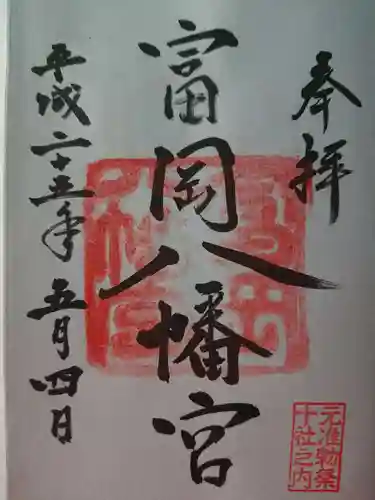 奉拝
富岡八幡宮
平成二十五年五月四日
元准勅祭
十社之内